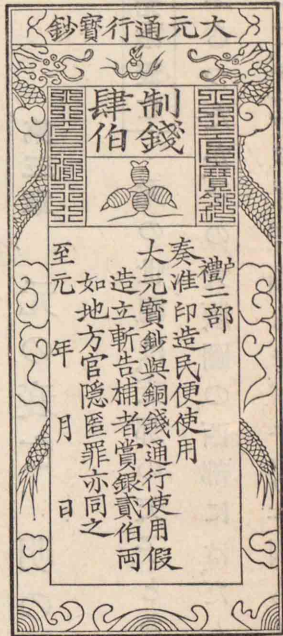 大元通行寶鈔
制錢
肆伯
戶禮二部
奏准印造民便使用
大元寶鈔與銅錢通行使用假
造立斬告捕者賞銀貳伯兩
如地方官隱匿罪亦同之
至元 年 月 日